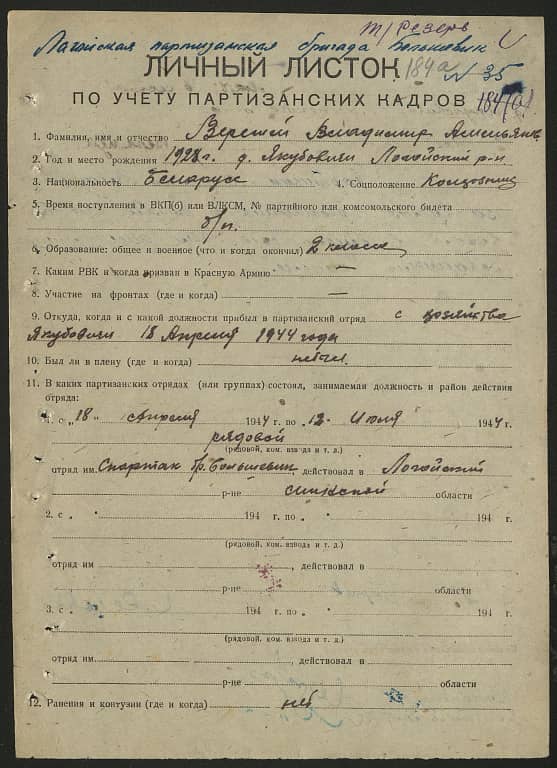 т/резерв
Логойская партизанская бригада Большевик
ЛИЧНЫЙ ЛИСТОК 184а N 35
ПО УЧЕТУ ПАРТИЗАНСКИХ КАДРОВ
1. Фамилия, имя и отчество Владимир
2. Год и место рождения д. Якубовичи Логойский р-н
3. Национальность Беларусс 4. Соцположение Колхозник
5. Время поступления в ВКП(б) или ВЛКСМ, № партийного или комсомольского билета
б/п.
6. Образование: общее и военное (что и когда окончил) 2 класса
7. Каким РВК и когда призван в Красную Армию —
8. Участие на фронтах (где и когда) —
9. Откуда, когда и с какой должности прибыл в партизанский отряд с хозяйства
Якубовичи 18 Апреля 1944 года
10. Был ли в плену (где и когда) не был
11. В каких партизанских отрядах (или группах) состоял, занимаемая должность и район действия
отряда:
1. с „18" Апреля 1944 г. по „12" Июля 1944 г.
рядовой
(рядовой, ком. взвода и т. д.)
отряд им. Спартак бр. Большевик, действовал в Логойский
р-не Минской области
2. с „ " 194 г. по „ " 194 г.
(рядовой, ком. взвода и т. д.)
отряд им , действовал в
р-не области
3. с „ " 194 г. по „ " 194 г.
(рядовой, ком. взвода и т. д.)
отряд им , действовал в
р-не области
12. Ранения и контузии (где и когда) нет